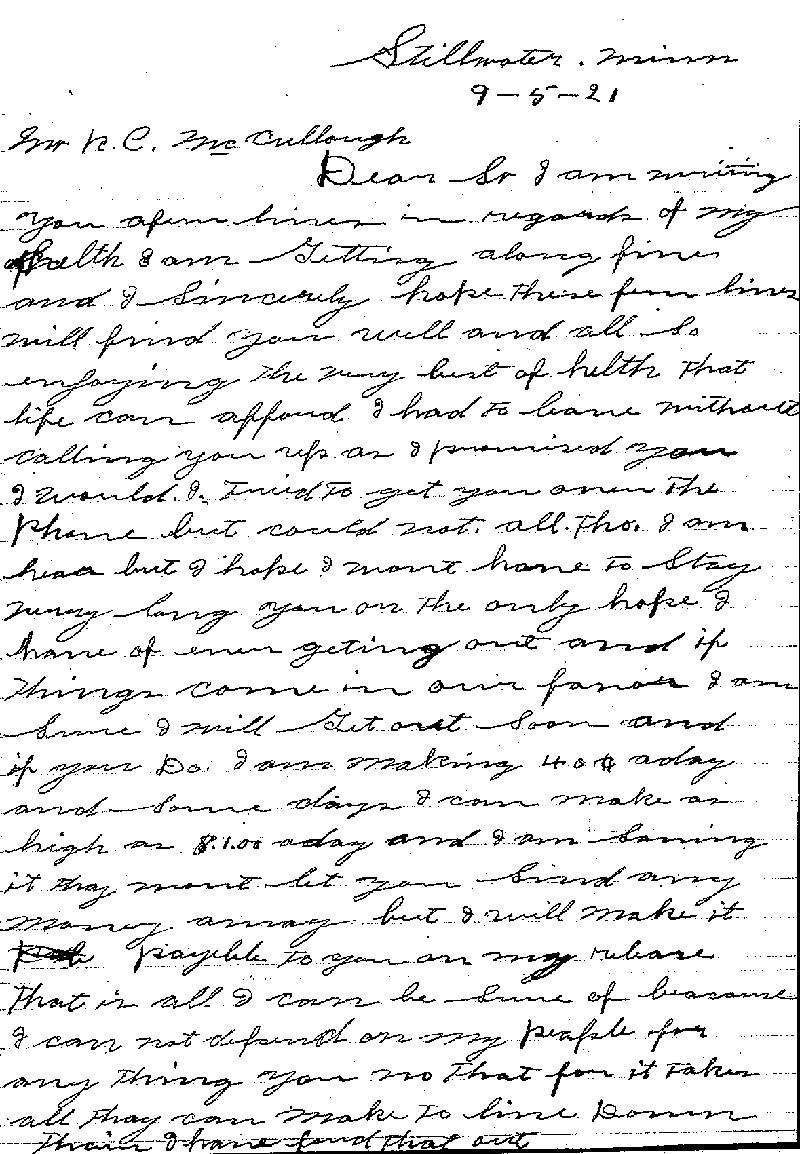 Stillwater. Minn
9-5-21
Mr R. C. McCullough
Dear Sr I am writing
you a few lines in regards of my
helth I am Getting along fine
and I Sincerely hope these few lines
will find you well and all So
enjoying the very best of helth that
life can affoud I had to leave without
calling you up as I promised you
I would. I. tried to get you over the
Phone but could not. all. tho. I am
hear but I hope I wont have to Stay
very long you or the only hope I
have of ever geting out and if
things come in our favor I am
Sure I will Get out Soon and
if you Do. I am making 40¢ aday
and Some days I can make as
high as $.1.00 aday and I am Saving
it thay wont let you Sind any
money away but I will make it
payeble to you on my release
that is all I can be Sure of because
I can not depend on my people for
any thing you no that for it takes
all thay can make to live Down
thair I have found that out